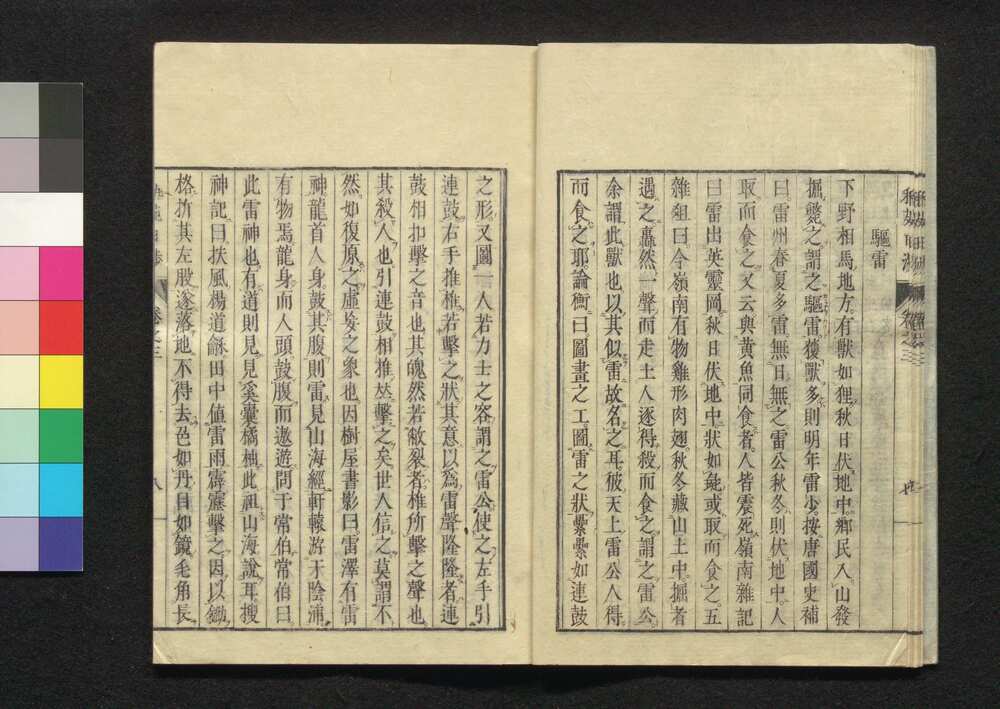 驅雷
下野相馬地方有獸如狸秋日伏地中鄉民入山發
掘斃之謂之驅雷獲獸多則明年雷少按唐國史補
曰雷州春夏多雷無日無之雷公秋冬則伏地中人
取而食之又云與黄魚同食者人皆震死嶺南雜記
曰雷出英靈岡秋日伏地中狀如彘或取而食之五
雜俎曰今嶺南有物雞形肉翅秋冬藏山土中掘者
遇之轟然一聲而走土人逐得殺而食之謂之雷公
余謂此獸也以其似雷故名之耳彼天上雷公人得
而食之耶論衡曰圖畫之工圖雷之狀纍纍如連鼓
之形又圖一人若力士之容謂之雷公使之左手引
連鼓右手推椎若擊之狀其意以爲雷聲隆隆者連
鼓相扣擊之音也其魄然若敝裂者椎所擊之聲也
其殺人也引連鼓相推並擊之矣世人信之莫謂不
然如復原之虛妄之象也因樹屋書影曰雷澤有雷
神龍首人身鼓其腹則雷見山海經軒轅游于陰浦
有物焉龍身而人頭鼓腹而遨遊問于常伯常伯曰
此雷神也有道則見見奚囊橘柚此祖山海說耳搜
神記曰扶風楊道龢田中值雷雨霹靂擊之因以鋤
格折其左股遂落地不得去色如丹目如鏡毛角長
卷之三
八